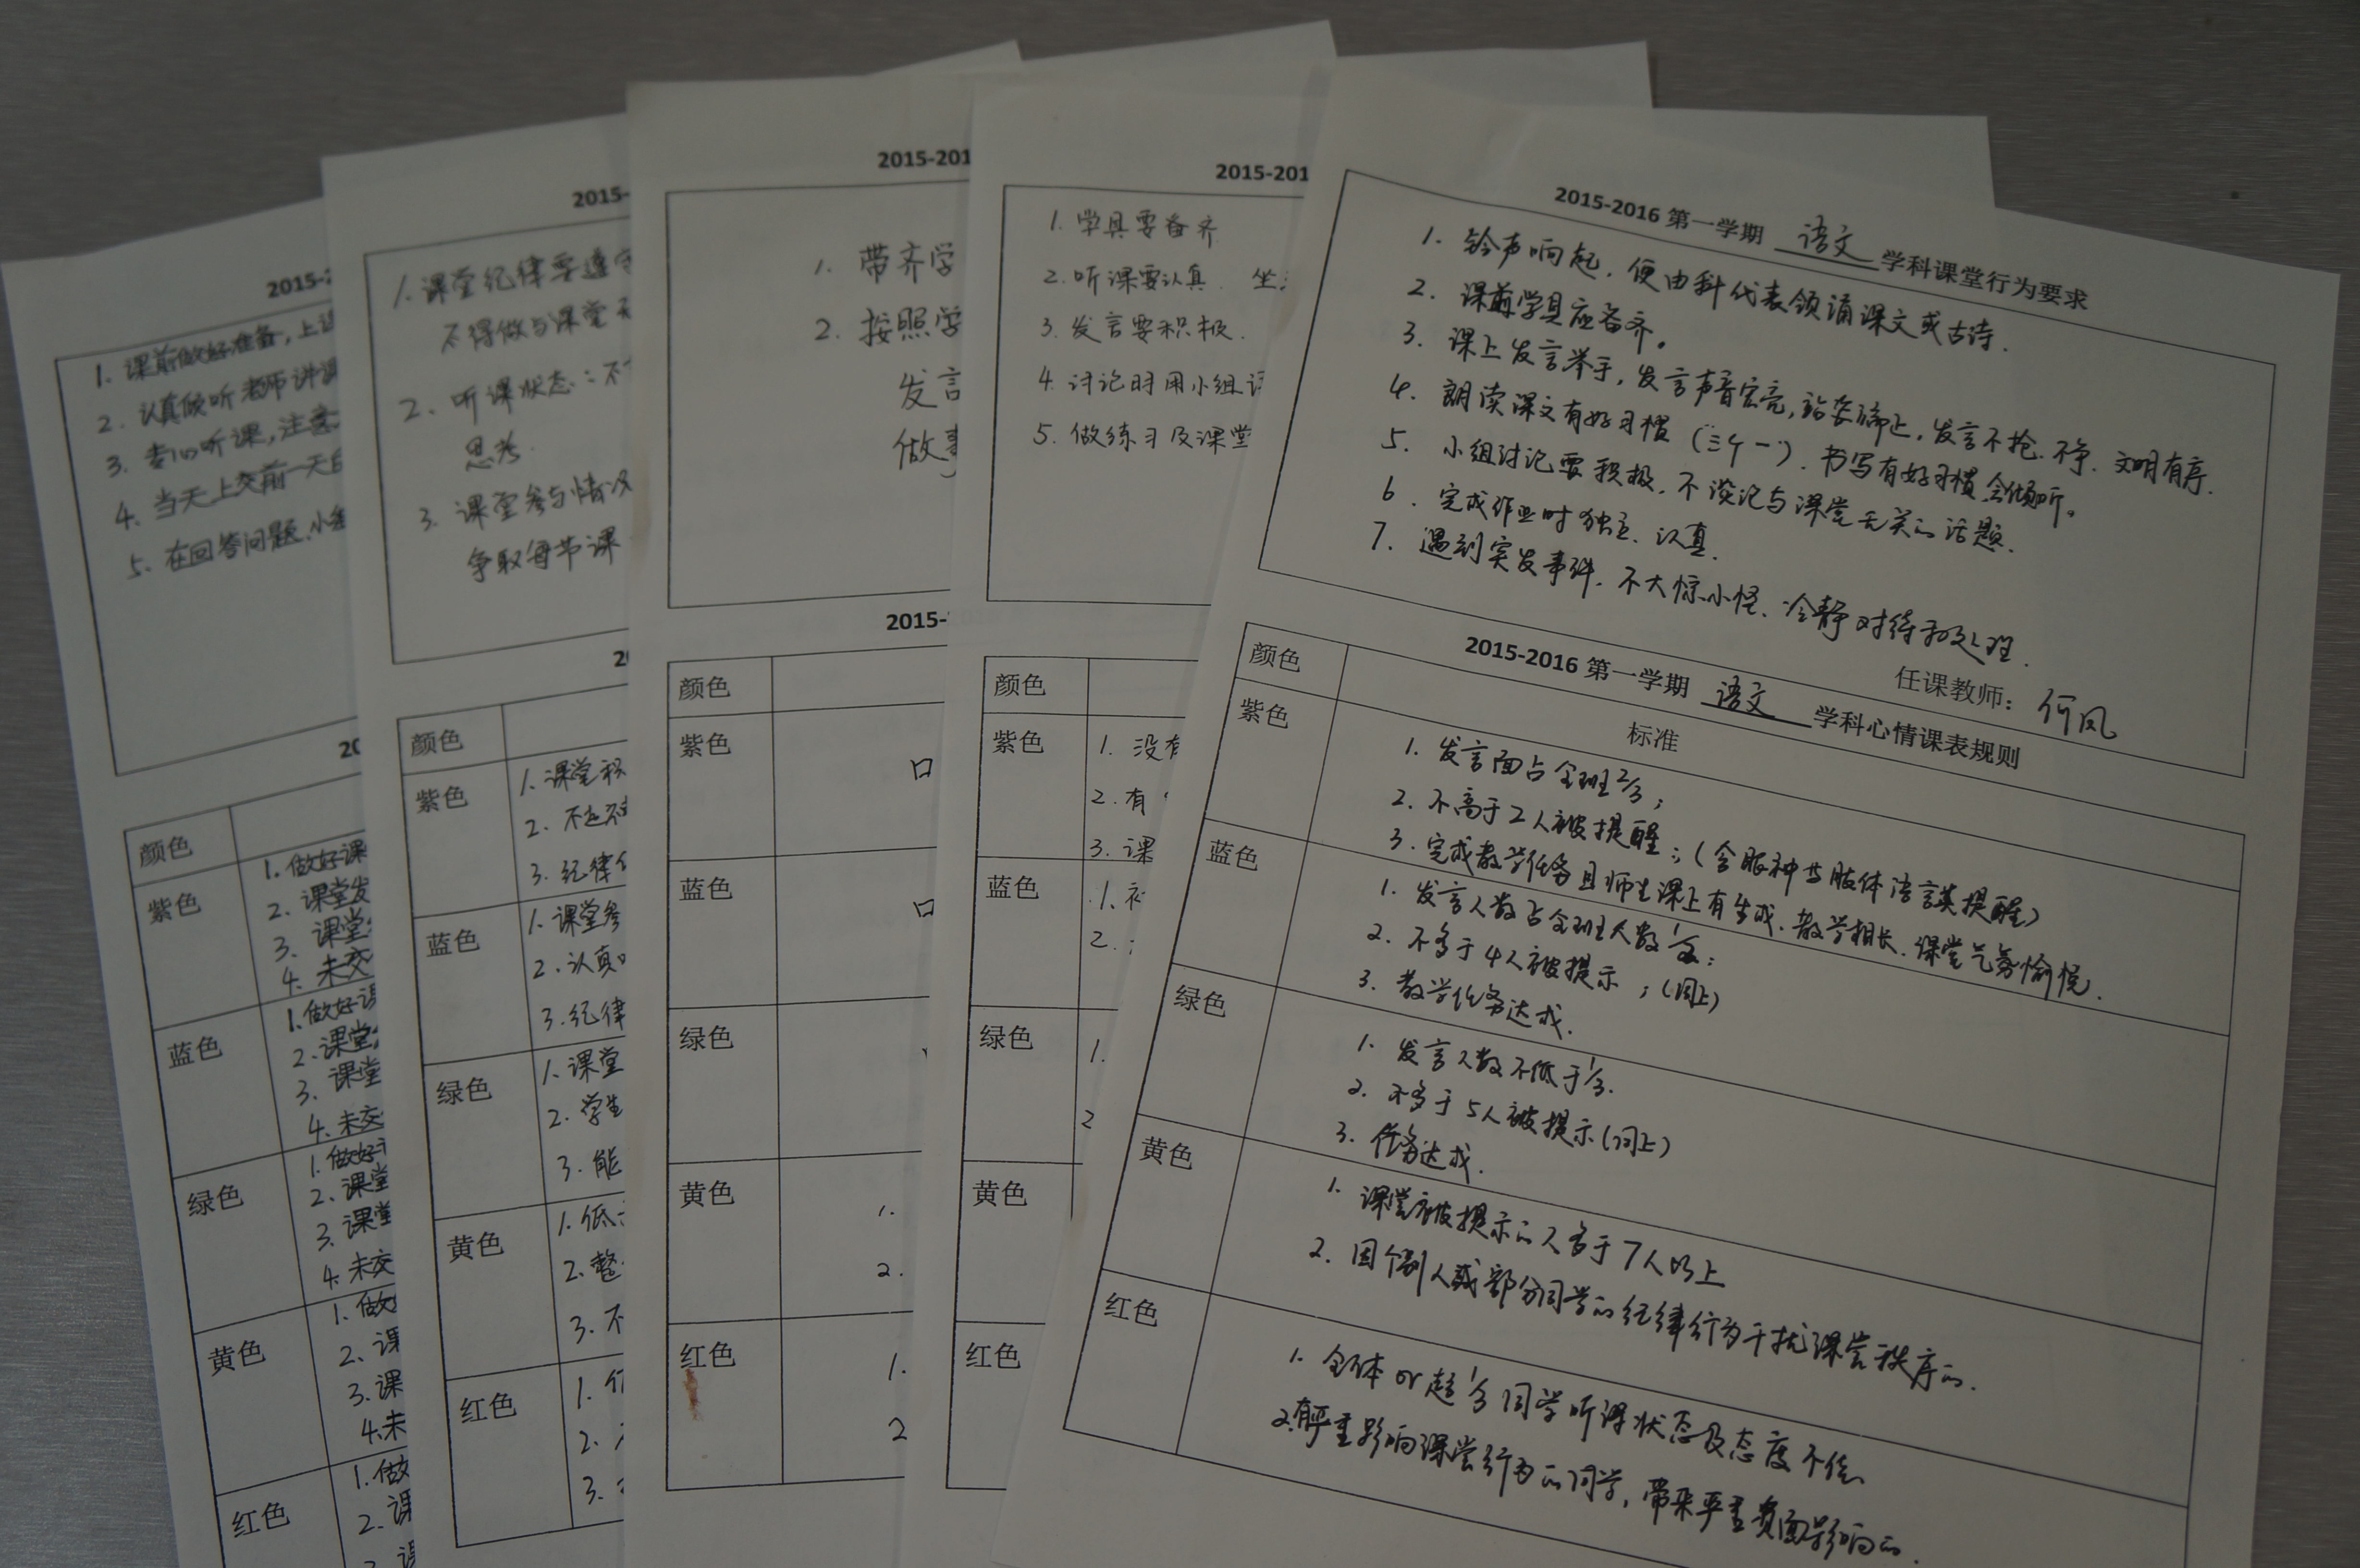 2015-2
1. 课前做好准备，上课
2. 认真倾听老师讲课
3. 专心听课，注意
4. 当天上交前一天
5. 在回答问题、小组
20
颜色
紫色
1. 做好课
2. 课堂发
3. 课堂
4. 未交
蓝色
1. 做好课
2. 课堂
3. 课堂
4. 未交
绿色
1. 做好
2. 课堂
3. 课堂
4. 未交
黄色
1. 做好
2. 课
3. 课
4. 未
红色
1. 做好
2. 课
2015-
1. 课堂纪律要遵守
不得做与课堂无
2. 听课状态：不
思考.
3. 课堂参与情况
争取每节课
20
颜色
紫色
1. 课堂积
2. 不
3. 纪律
蓝色
1. 课堂参
2. 认真
3. 纪律
绿色
1. 课堂
2. 学生
3. 能
黄色
1. 低
2. 整
3. 不
红色
1.
2.
3.
2015-201
1. 带齐学
2. 按照学
发言
做事
2015-
颜色
紫色
口
蓝色
口
绿色
黄色
1.
2.
红色
1.
2
2015-201
1. 学具要备齐
2. 听课要认真. 坐
3. 发言要积极.
4. 讨论时用小组
5. 做练习及课堂
颜色
紫色
1. 没有
2. 有
3. 课
蓝色
1.
2.
绿色
1.
2
黄色
红色
2015-2016 第一学期 语文 学科课堂行为要求
1. 铃声响起，便由科代表领诵课文或古诗.
2. 课前学具应备齐。
3. 课上发言举手，发言声音宏亮，站姿端正，发言不抢、不争、文明有序.
4. 朗读课文有好习惯（三个一）. 书写有好习惯，会倾听。
5. 小组讨论要积极，不谈论与课堂无关的话题.
6. 完成作业时独立、认真.
7. 遇到突发事件，不大惊小怪、冷静对待和处理.
任课教师：何凤
2015-2016 第一学期 语文 学科心情课表规则
颜色 标准
紫色
1. 发言面占全班2/3；
2. 不高于2人被提醒；（含眼神与肢体语言类提醒）
3. 完成教学任务且师生课上有生成、教学相长、课堂气氛愉悦.
蓝色
1. 发言人数占全班人数；
2. 不多于4人被提示；（同上）
3. 教学任务达成.
绿色
1. 发言人数不低于1/3.
2. 不多于5人被提示（同上）
3. 任务达成.
黄色
1. 课堂被提示的人多于7人以上
2. 因个别人或部分同学的纪律行为干扰课堂秩序的.
红色
1. 全体or超1/3同学听课状态及态度不佳.
2. 有严重影响课堂行为的同学，带来严重负面影响的.